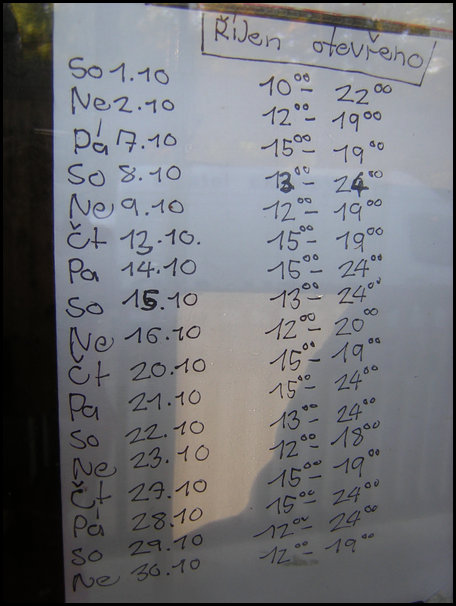 Říjen otevřeno
So 1.10 10⁰⁰ - 22⁰⁰
Ne 2.10 12⁰⁰ - 19⁰⁰
Pá 7.10 15⁰⁰ - 19⁰⁰
So 8.10 13⁰⁰ - 24⁰⁰
Ne 9.10 12⁰⁰ - 19⁰⁰
Čt 13.10. 15⁰⁰ - 19⁰⁰
Pá 14.10 15⁰⁰ - 24⁰⁰
So 15.10 13⁰⁰ - 24⁰⁰
Ne 16.10 12⁰⁰ - 20⁰⁰
Čt 20.10 15⁰⁰ - 19⁰⁰
Pá 21.10 15⁰⁰ - 24⁰⁰
So 22.10 13⁰⁰ - 24⁰⁰
Ne 23.10 12⁰⁰ - 18⁰⁰
Čt 27.10 15⁰⁰ - 19⁰⁰
Pá 28.10 15⁰⁰ - 24⁰⁰
So 29.10 12⁰⁰ - 24⁰⁰
Ne 30.10 12⁰⁰ - 19⁰⁰